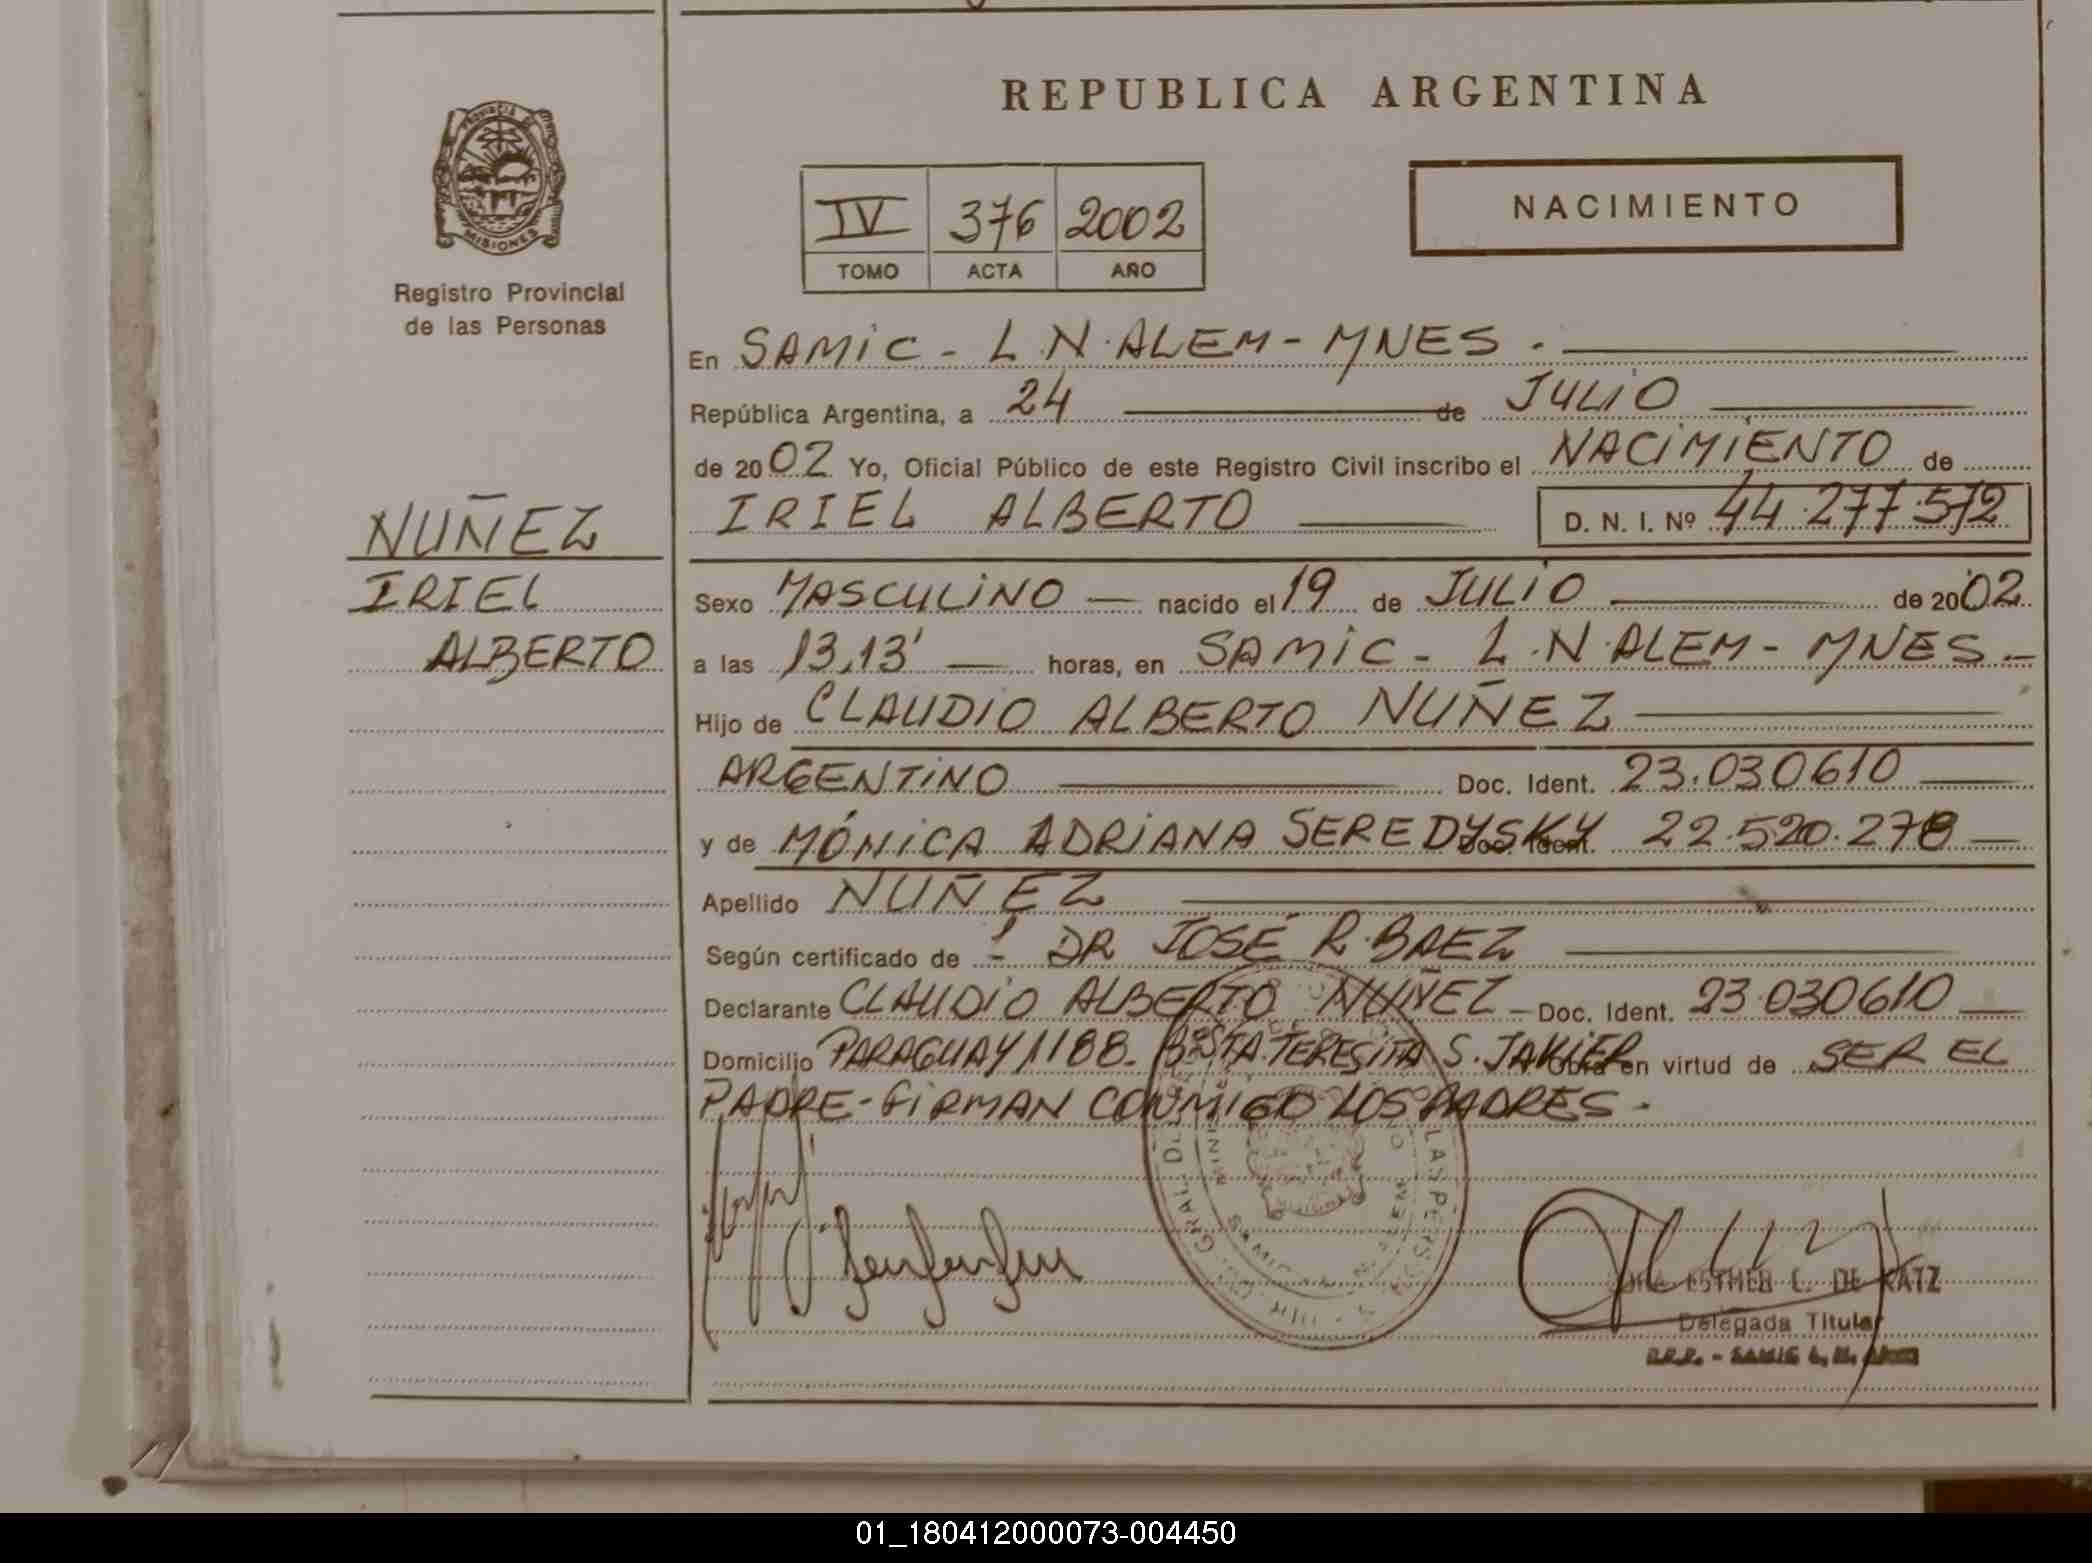 REPUBLICA ARGENTINA
PROVINCIA DE
MISIONES
Registro Provincial
de las Personas
IV 376 2002
TOMO ACTA AÑO
NACIMIENTO
En SAMIC - L.N. ALEM - MNES.
República Argentina, a 24 de JULIO
de 2002 Yo, Oficial Público de este Registro Civil inscribo el NACIMIENTO de
IRIEL ALBERTO D. N. I. Nº 44.277.572
NUÑEZ
IRIEL
ALBERTO
Sexo MASCULINO nacido el 19 de JULIO de 2002
a las 13,13' horas, en SAMIC - L.N. ALEM - MNES -
Hijo de CLAUDIO ALBERTO NUÑEZ
ARGENTINO Doc. Ident. 23.030610
y de MÓNICA ADRIANA SEREDYSKY Doc. Ident. 22.520.278
Apellido NUÑEZ
Según certificado de DR JOSÉ R. BAEZ
Declarante CLAUDIO ALBERTO NUÑEZ - Doc. Ident. 23.030610
Domicilio PARAGUAY 1188. Bº STA. TERESITA S. JAVIER Obra en virtud de SER EL
PADRE - FIRMAN CONMIGO LOS PADRES -
LAS PERSONAS
ESTHER L. DE KATZ
Delegada Titular
01_180412000073-004450